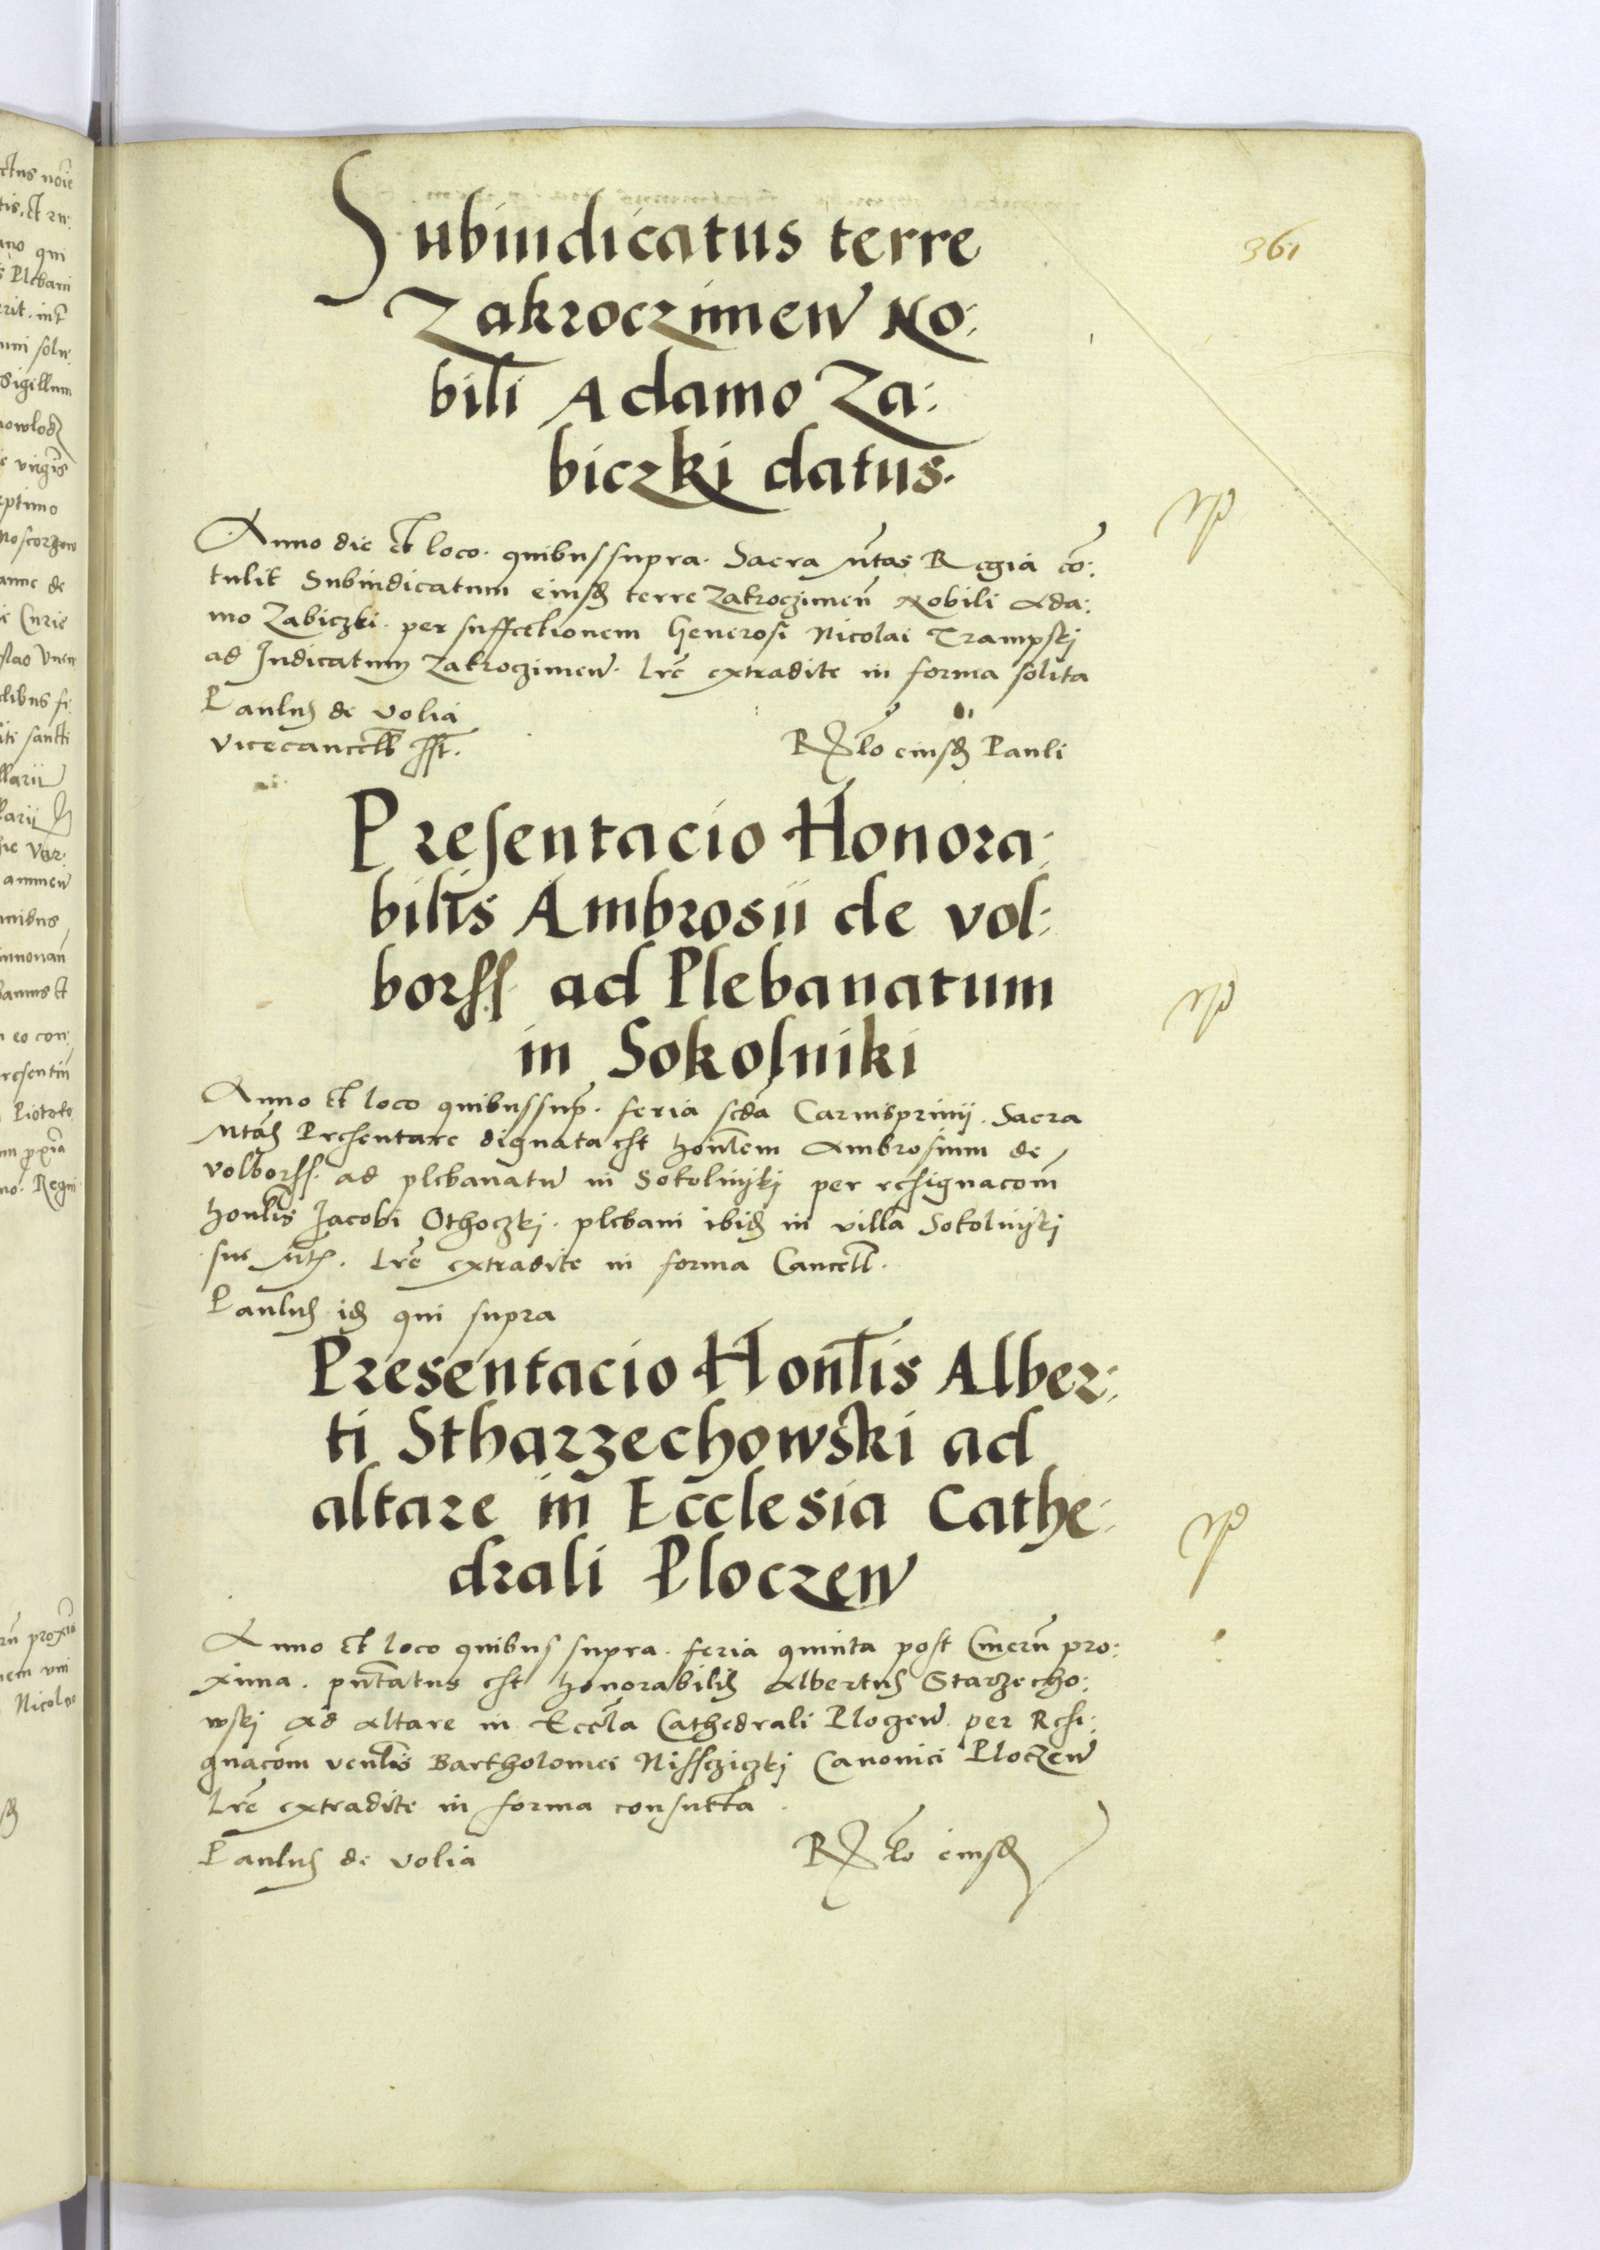 361
Subiudicatus terre
Zakroczimen̄ No:
bili Adamo Za:
biczki datus.
Anno die et loco. quibus supra. Sacra M̄tas Regia cō:
tulit Subiudicatum eiusd terre Zakroczimen̄ Nobili Ada:
mo Zabiczki. per suffectionem Generosi Nicolai Trampskj
ad Iudicatum Zakroczimen̄. Lr̄e extradite in forma solita
Paulus de Volia
Vicecancell sst.
Rlo eiusd Pauli
Presentacio Honora:
bilis Ambrosii de vol:
borss ad Plebanatum
in Sokolniki
Anno et loco quibus sup̄. feria scda Carnisprivij. Sacra
Mtas Presentare dignata est hon̄lem Ambrosium de
volborss. ad plebanatū in Sokolnijkj per resignacōm
honl̄is Jacobi Othoczkj. plebani ibid in villa Sokolnijkj
sue Mtis. Lr̄e extradite in forma Cancell.
Paulus id qui supra
Presentacio Honl̄is Alber:
ti Stharzechowski ad
altare in Ecclesia Cathe:
drali Ploczen̄
Anno et loco quibus supra. feria quinta post Cinerū pro:
xima. pn̄tatus est honorabilis Albertus Starzecho:
wskj Ad Altare in Eccl̄a Cathedrali Ploczen̄ per Resi:
gnacōm venl̄is Bartholomei Nisscziczkj Canonici Ploczen̄
Lr̄e extradite in forma consueta
Paulus de Volia
Rlo eiusd